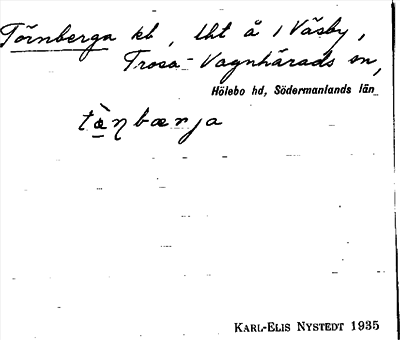 Törnberga kb, lht å 1 Väsby,
Trosa-Vagnhärads sn,
Hölebo hd, Södermanlands län
tæ̀ŋbærja
KARL-ELIS NYSTEDT 1935